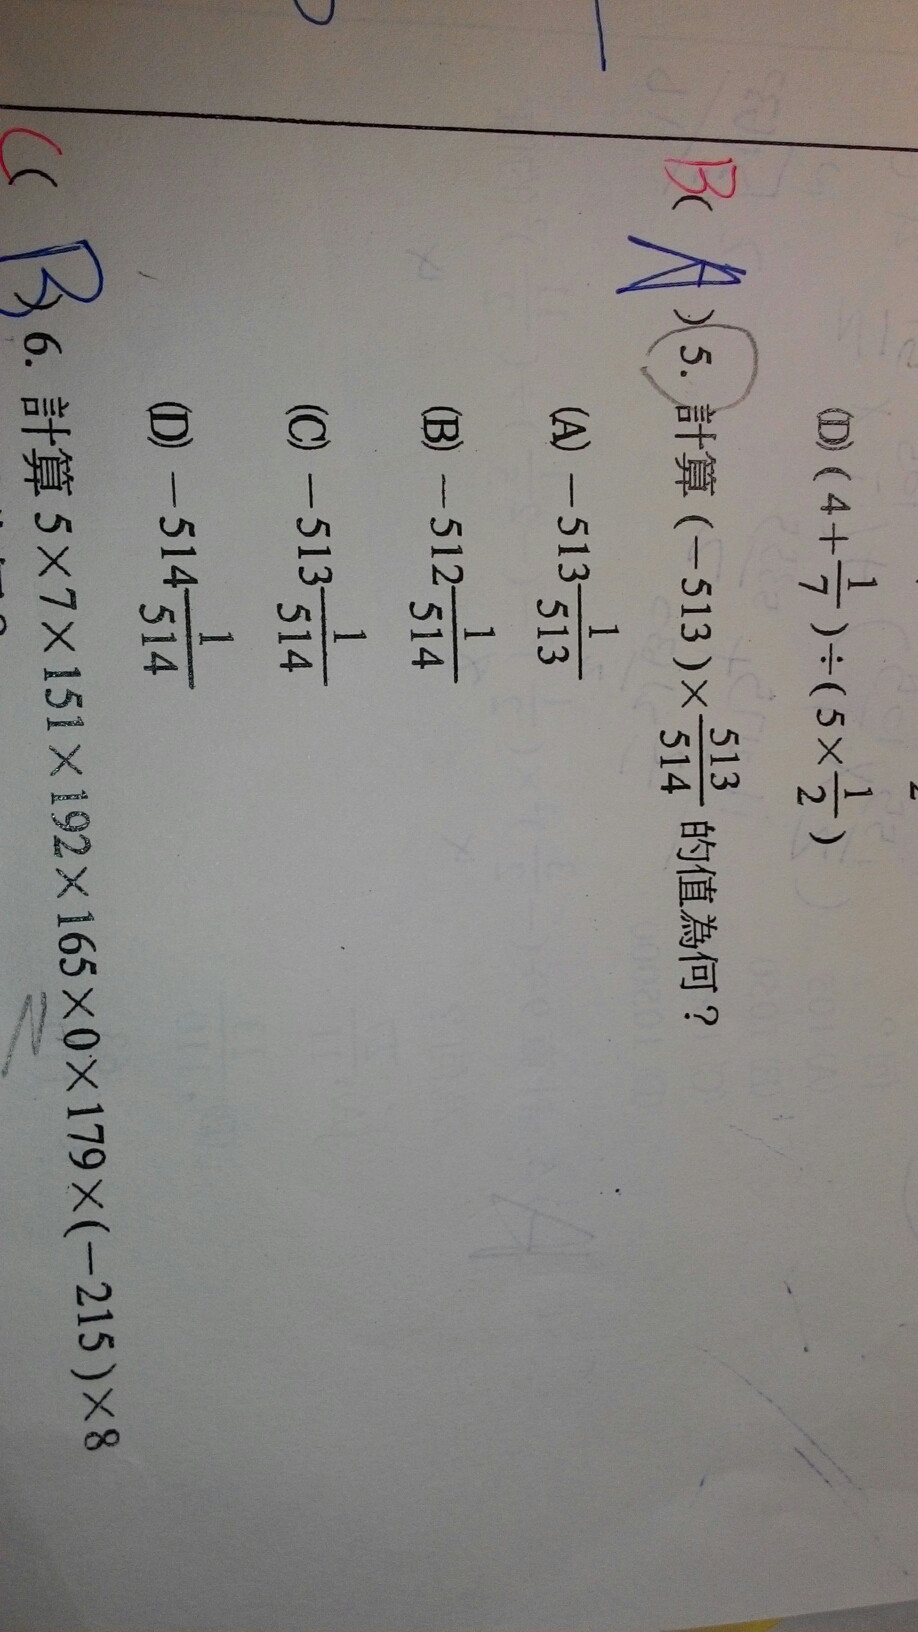 (D) (4+1/7)÷(5×1/2)
B( A )5. 計算(-513)×513/514 的值為何?
(A) -513 1/513
(B) -512 1/514
(C) -513 1/514
(D) -514 1/514
C( B )6. 計算 5×7×151×192×165×0×179×(-215)×8